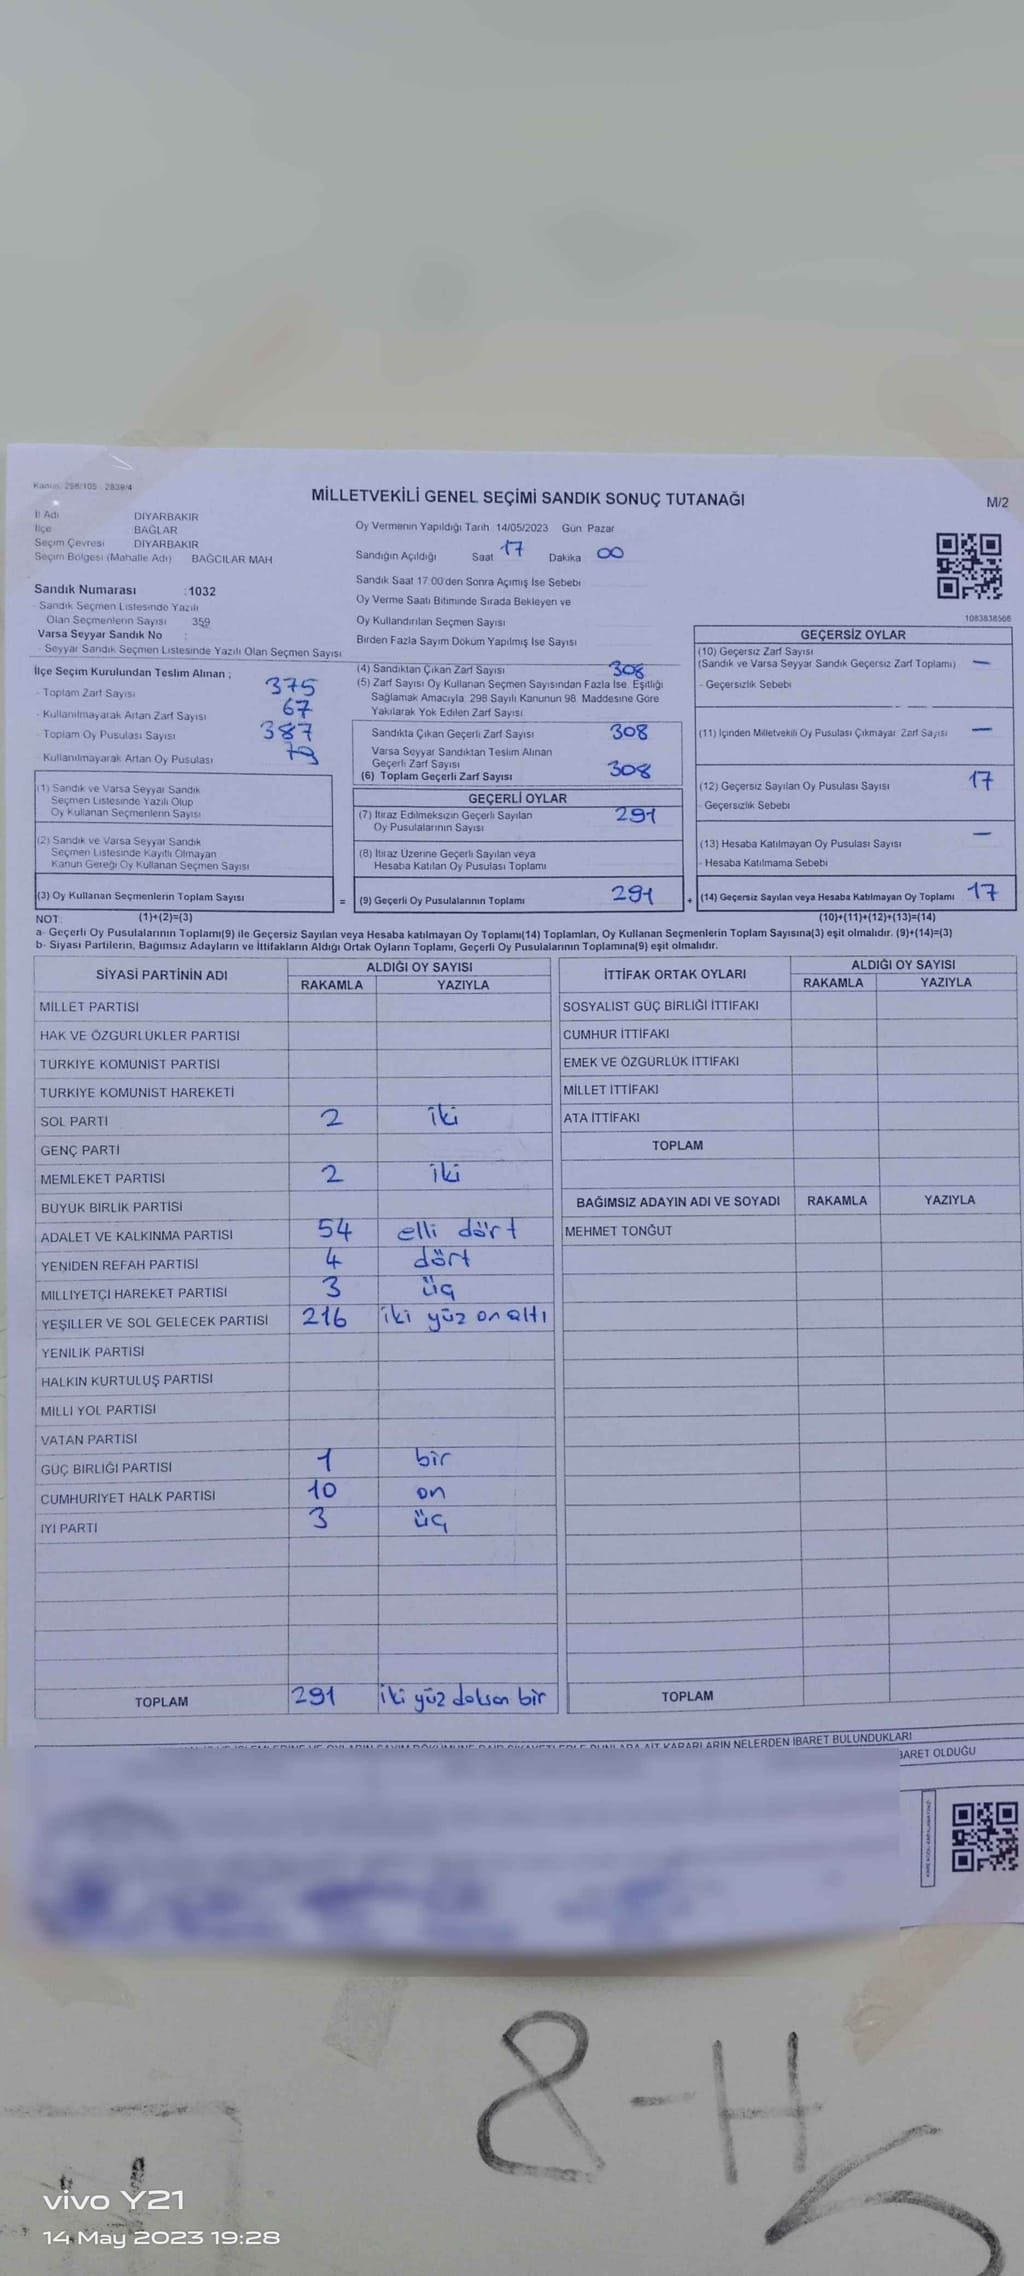 Kanun: 298/105 - 2839/4
MİLLETVEKİLİ GENEL SEÇİMİ SANDIK SONUÇ TUTANAĞI
M/2
İl Adı DİYARBAKIR
İlçe BAĞLAR
Seçim Çevresi DİYARBAKIR
Seçim Bölgesi (Mahalle Adı) BAĞCILAR MAH
Sandık Numarası :1032
- Sandık Seçmen Listesinde Yazılı
Olan Seçmenlerin Sayısı 359
Varsa Seyyar Sandık No :
- Seyyar Sandık Seçmen Listesinde Yazılı Olan Seçmen Sayısı
Oy Vermenin Yapıldığı Tarih :14/05/2023 Gün Pazar
Sandığın Açıldığı Saat 17 Dakika 00
Sandık Saat 17:00'den Sonra Açılmış İse Sebebi
Oy Verme Saati Bitiminde Sırada Bekleyen ve
Oy Kullandırılan Seçmen Sayısı
Birden Fazla Sayım Döküm Yapılmış İse Sayısı
1083838566
İlçe Seçim Kurulundan Teslim Alınan ;
- Toplam Zarf Sayısı 375
- Kullanılmayarak Artan Zarf Sayısı 67
- Toplam Oy Pusulası Sayısı 387
- Kullanılmayarak Artan Oy Pusulası 79
(1) Sandık ve Varsa Seyyar Sandık
Seçmen Listesinde Yazılı Olup
Oy Kullanan Seçmenlerin Sayısı
(2) Sandık ve Varsa Seyyar Sandık
Seçmen Listesinde Kayıtlı Olmayan
Kanun Gereği Oy Kullanan Seçmen Sayısı
(3) Oy Kullanan Seçmenlerin Toplam Sayısı
=
(4) Sandıktan Çıkan Zarf Sayısı 308
(5) Zarf Sayısı Oy Kullanan Seçmen Sayısından Fazla İse, Eşitliği
Sağlamak Amacıyla, 298 Sayılı Kanunun 98. Maddesine Göre
Yakılarak Yok Edilen Zarf Sayısı
Sandıkta Çıkan Geçerli Zarf Sayısı 308
Varsa Seyyar Sandıktan Teslim Alınan
Geçerli Zarf Sayısı
(6) Toplam Geçerli Zarf Sayısı 308
GEÇERLİ OYLAR
(7) İtiraz Edilmeksizin Geçerli Sayılan 291
Oy Pusulalarının Sayısı
(8) İtiraz Üzerine Geçerli Sayılan veya
Hesaba Katılan Oy Pusulası Toplamı
(9) Geçerli Oy Pusulalarının Toplamı 291
+
GEÇERSİZ OYLAR
(10) Geçersiz Zarf Sayısı
(Sandık ve Varsa Seyyar Sandık Geçersiz Zarf Toplamı) —
- Geçersizlik Sebebi
(11) İçinden Milletvekili Oy Pusulası Çıkmayan Zarf Sayısı —
(12) Geçersiz Sayılan Oy Pusulası Sayısı 17
- Geçersizlik Sebebi
(13) Hesaba Katılmayan Oy Pusulası Sayısı —
- Hesaba Katılmama Sebebi
(14) Geçersiz Sayılan veya Hesaba Katılmayan Oy Toplamı 17
NOT: (1)+(2)=(3) (10)+(11)+(12)+(13)=(14)
a- Geçerli Oy Pusulalarının Toplamı(9) ile Geçersiz Sayılan veya Hesaba katılmayan Oy Toplamı(14) Toplamları, Oy Kullanan Seçmenlerin Toplam Sayısına(3) eşit olmalıdır. (9)+(14)=(3)
b- Siyasi Partilerin, Bağımsız Adayların ve İttifakların Aldığı Ortak Oyların Toplamı, Geçerli Oy Pusulalarının Toplamına(9) eşit olmalıdır.
SİYASİ PARTİNİN ADI ALDIĞI OY SAYISI
RAKAMLA YAZIYLA
MİLLET PARTİSİ
HAK VE ÖZGÜRLÜKLER PARTİSİ
TÜRKİYE KOMÜNİST PARTİSİ
TÜRKİYE KOMÜNİST HAREKETİ
SOL PARTİ 2 iki
GENÇ PARTİ
MEMLEKET PARTİSİ 2 iki
BÜYÜK BİRLİK PARTİSİ
ADALET VE KALKINMA PARTİSİ 54 elli dört
YENİDEN REFAH PARTİSİ 4 dört
MİLLİYETÇİ HAREKET PARTİSİ 3 üç
YEŞİLLER VE SOL GELECEK PARTİSİ 216 iki yüz on altı
YENİLİK PARTİSİ
HALKIN KURTULUŞ PARTİSİ
MİLLİ YOL PARTİSİ
VATAN PARTİSİ
GÜÇ BİRLİĞİ PARTİSİ 1 bir
CUMHURİYET HALK PARTİSİ 10 on
İYİ PARTİ 3 üç
TOPLAM 291 iki yüz doksan bir
İTTİFAK ORTAK OYLARI ALDIĞI OY SAYISI
RAKAMLA YAZIYLA
SOSYALİST GÜÇ BİRLİĞİ İTTİFAKI
CUMHUR İTTİFAKI
EMEK VE ÖZGÜRLÜK İTTİFAKI
MİLLET İTTİFAKI
ATA İTTİFAKI
TOPLAM
BAĞIMSIZ ADAYIN ADI VE SOYADI RAKAMLA YAZIYLA
MEHMET TONĞUT
TOPLAM
KARARLARIN NELERDEN İBARET BULUNDUKLARI
BARET OLDUĞU
8-H
vivo Y21
14 May 2023 19:28